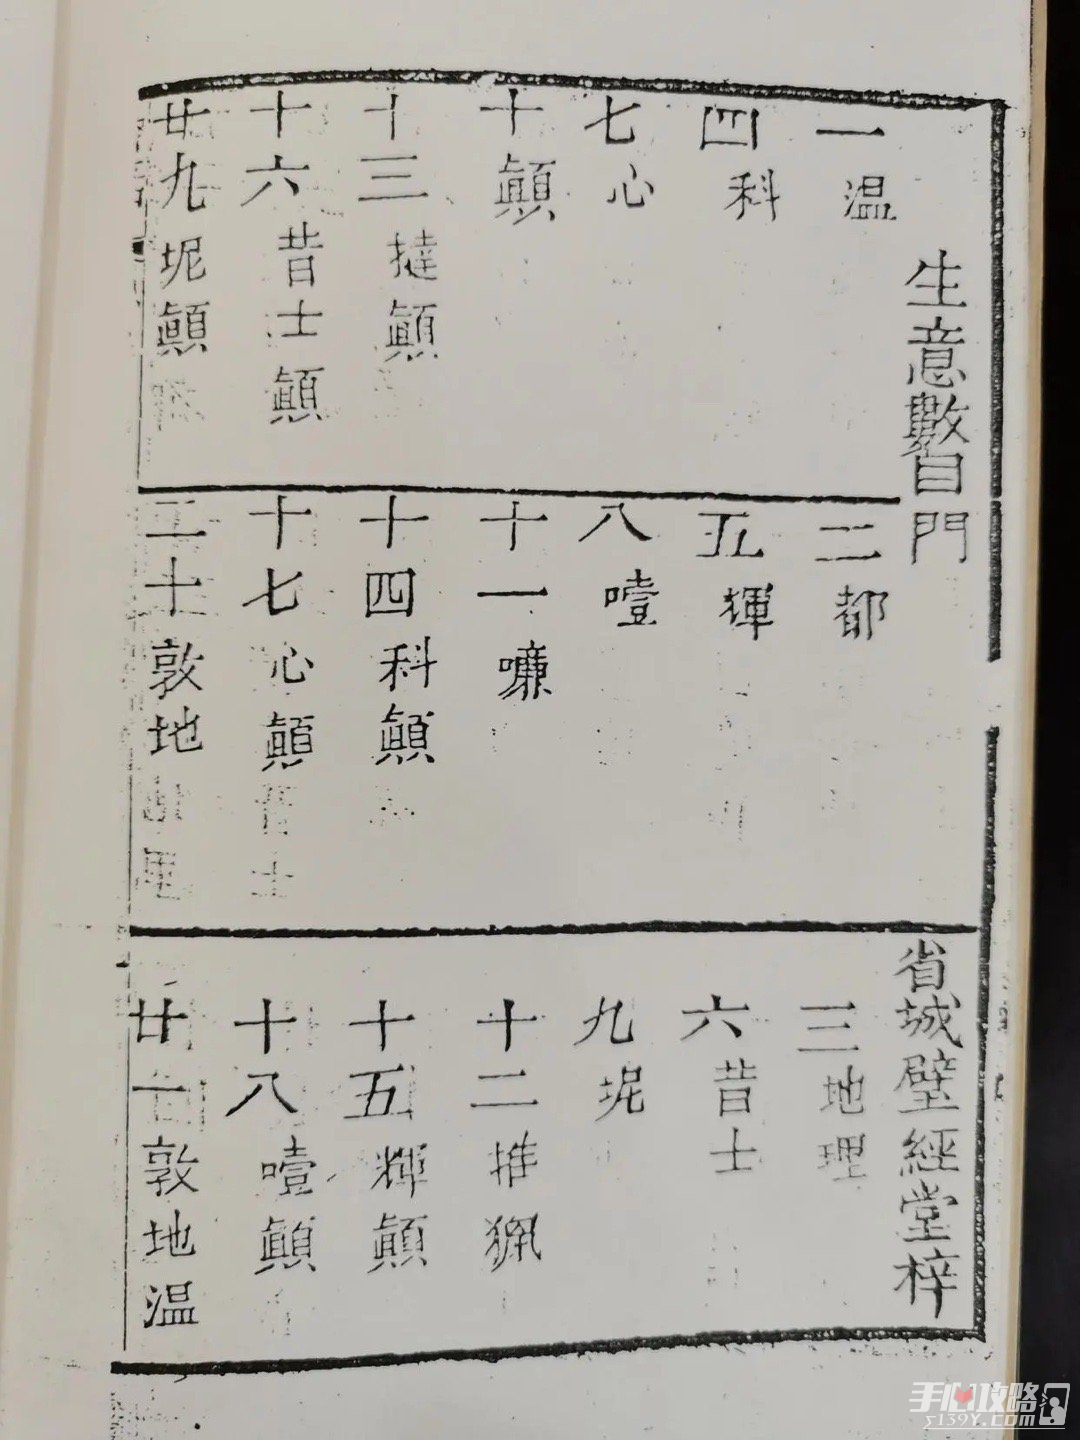 生意數目門
省城璧經堂梓
一 温
二 都
三 地理
四 科
五 揮
六 昔士
七 心
八 噎
九 坭
十 顛
十一 㘓
十二 推
十三 撻顛
十四 科顛
十五 輝顛
十六 昔士顛
十七 心顛
十八 噎顛
廿九 坭顛
二十 敦地
廿一 敦地温
手心攻略
y139Y.com